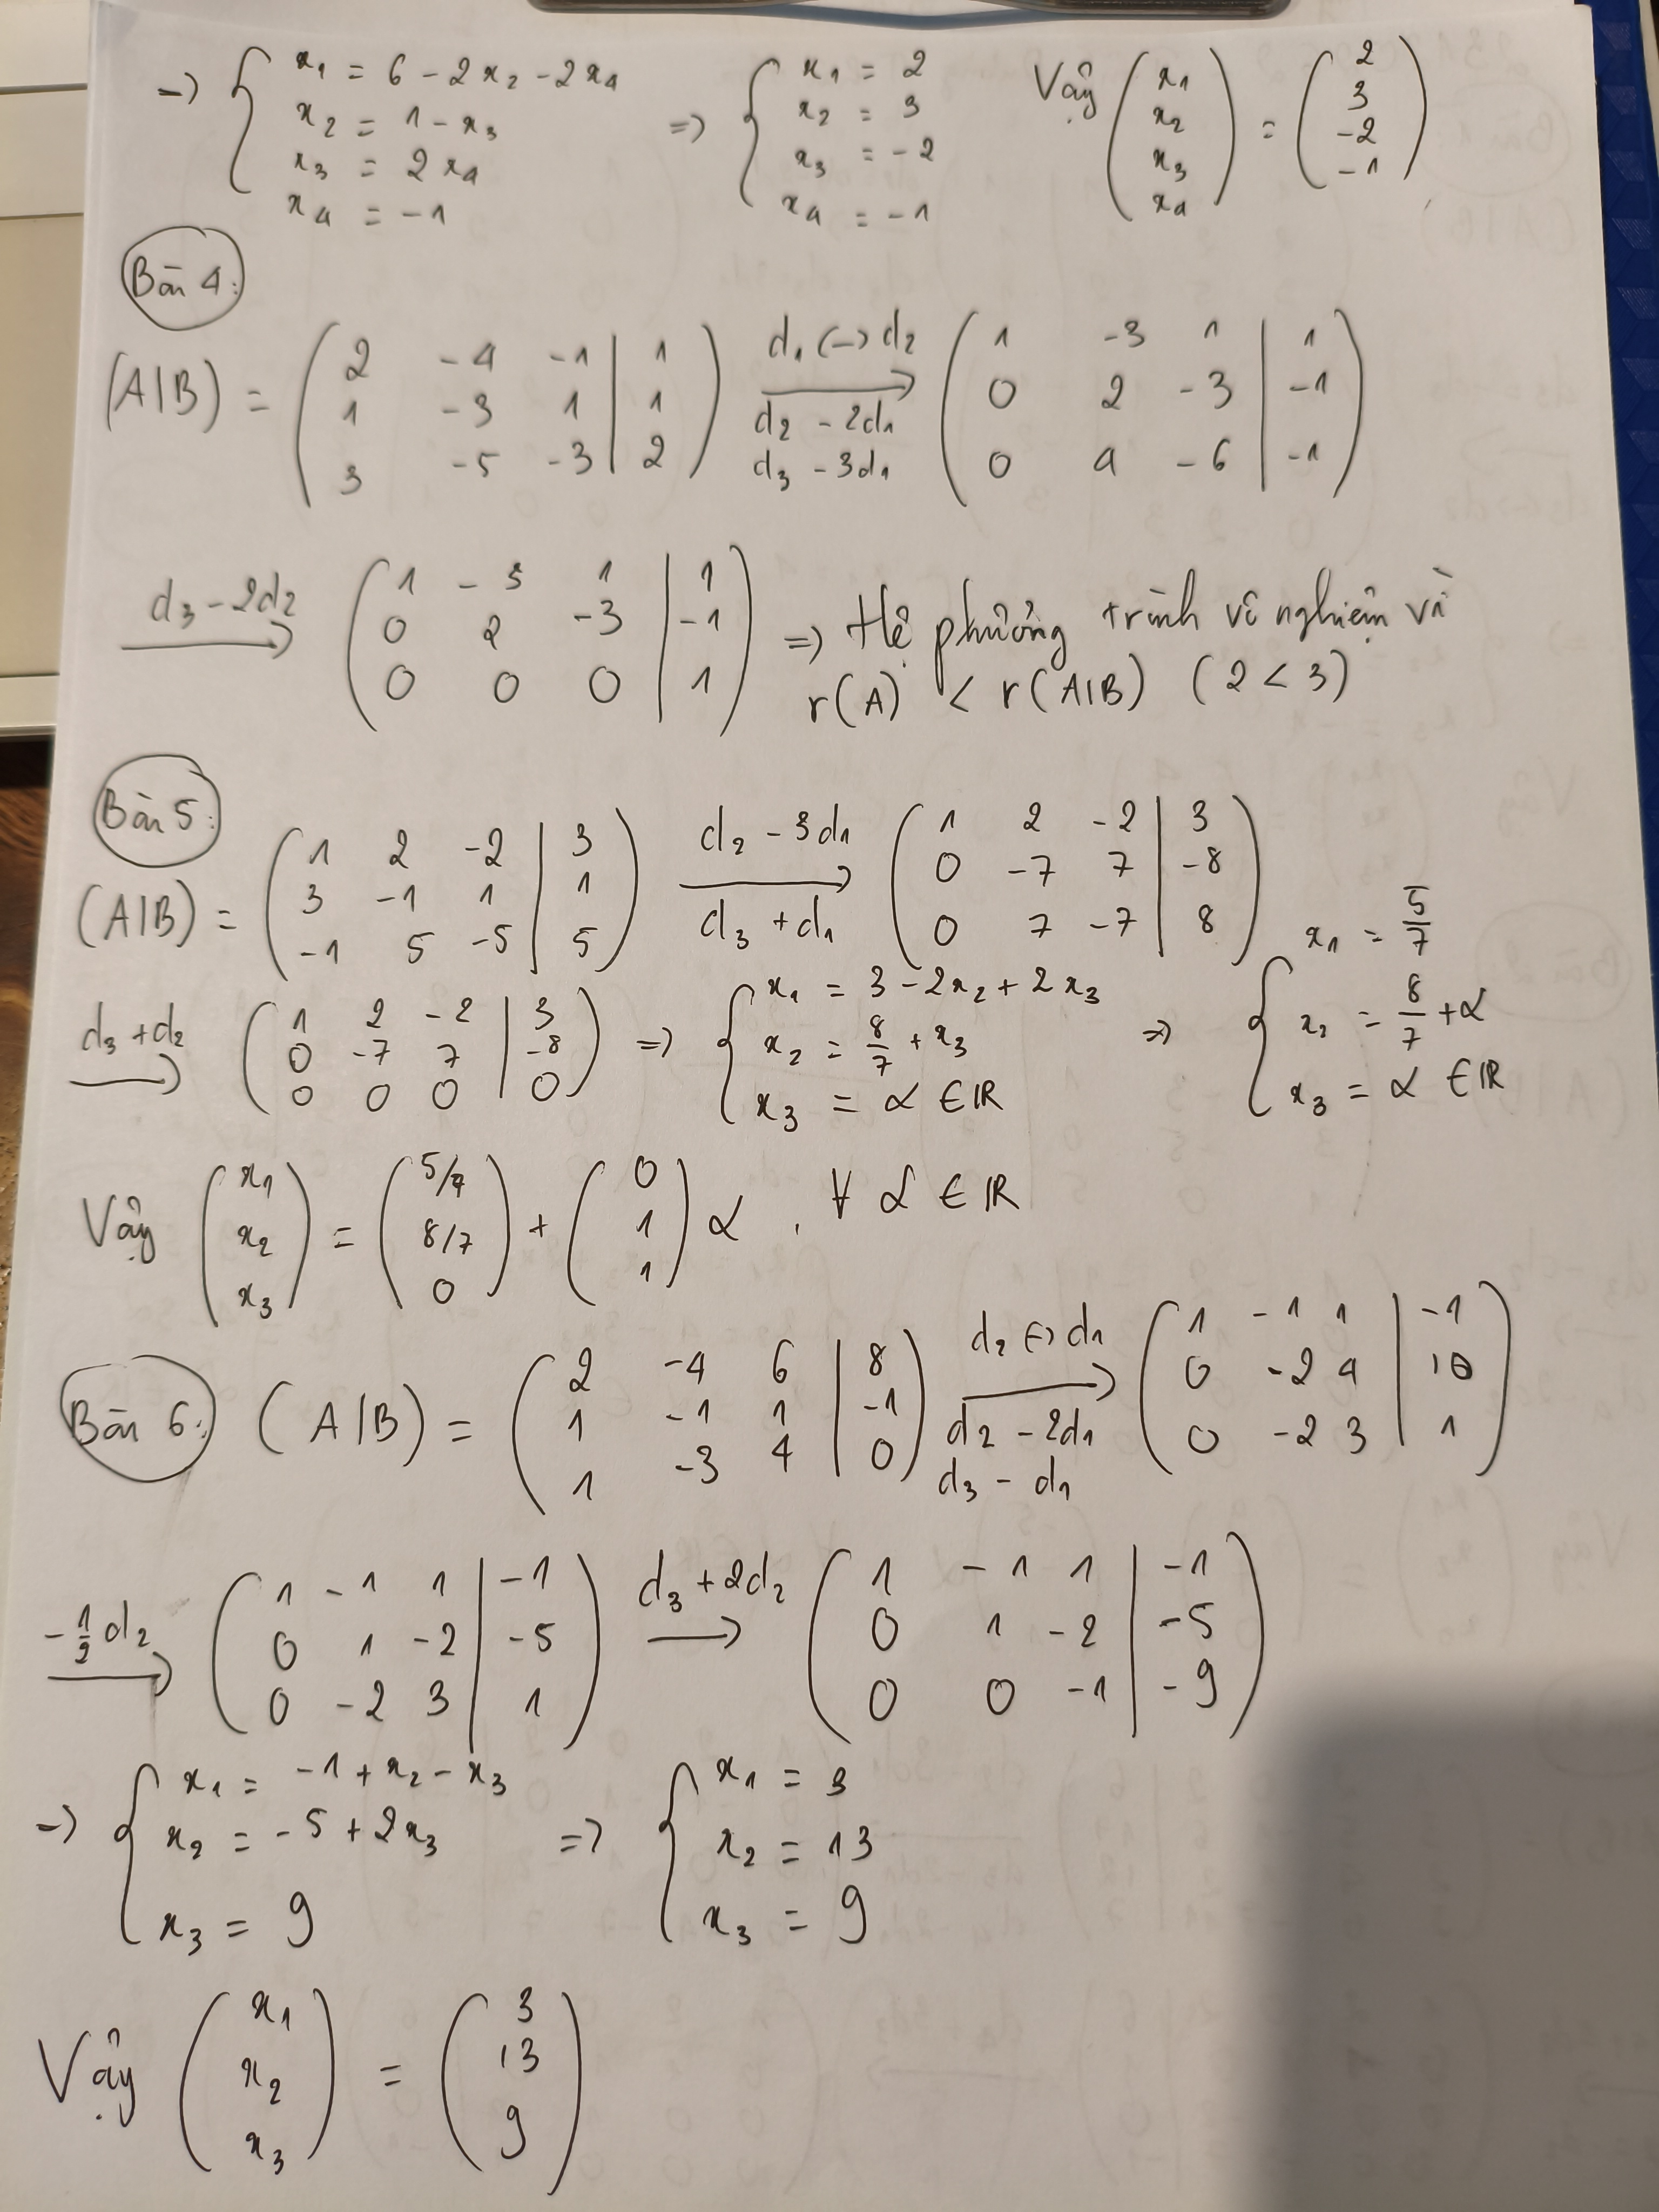 => { x1 = 6 - 2x2 - 2x4
x2 = 1 - x3
x3 = 2x4
x4 = -1
=> { x1 = 2
x2 = 3
x3 = -2
x4 = -1
Vậy ( x1 x2 x3 x4 ) = ( 2 3 -2 -1 )
Bài 4:
(A|B) = ( 2 -4 -1 | 1
1 -3 1 | 1
3 -5 -3 | 2 )
d1 <-> d2
d2 - 2d1
d3 - 3d1
( 1 -3 1 | 1
0 2 -3 | -1
0 4 -6 | -1 )
d3 - 2d2
( 1 -3 1 | 1
0 2 -3 | -1
0 0 0 | 1 )
=> Hệ phương trình vô nghiệm vì
r(A) < r(A|B) (2 < 3)
Bài 5:
(A|B) = ( 1 2 -2 | 3
3 -1 1 | 1
-1 5 -5 | 5 )
d2 - 3d1
d3 + d1
( 1 2 -2 | 3
0 -7 7 | -8
0 7 -7 | 8 )
d3 + d2
( 1 2 -2 | 3
0 -7 7 | -8
0 0 0 | 0 )
=> { x1 = 3 - 2x2 + 2x3
x2 = 8/7 + x3
x3 = α ∈ ℝ
=> { x1 = 5/7
x2 = 8/7 + α
x3 = α ∈ ℝ
Vậy ( x1 x2 x3 ) = ( 5/7 8/7 0 ) + ( 0 1 1 ) α , ∀ α ∈ ℝ
Bài 6:
(A|B) = ( 2 -4 6 | 8
1 -1 1 | -1
1 -3 4 | 0 )
d2 <-> d1
d2 - 2d1
d3 - d1
( 1 -1 1 | -1
0 -2 4 | 10
0 -2 3 | 1 )
-1/2 d2
( 1 -1 1 | -1
0 1 -2 | -5
0 -2 3 | 1 )
d3 + 2d2
( 1 -1 1 | -1
0 1 -2 | -5
0 0 -1 | -9 )
=> { x1 = -1 + x2 - x3
x2 = -5 + 2x3
x3 = 9
=> { x1 = 3
x2 = 13
x3 = 9
Vậy ( x1 x2 x3 ) = ( 3 13 9 )